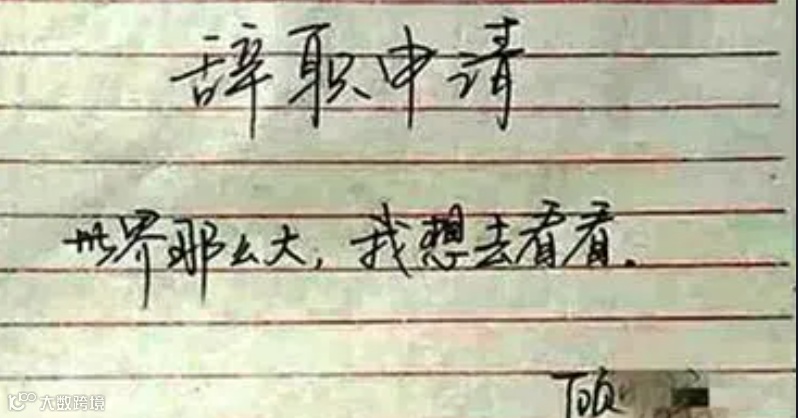 辞职申请
世界那么大，我想去看看.
顾
大数跨境